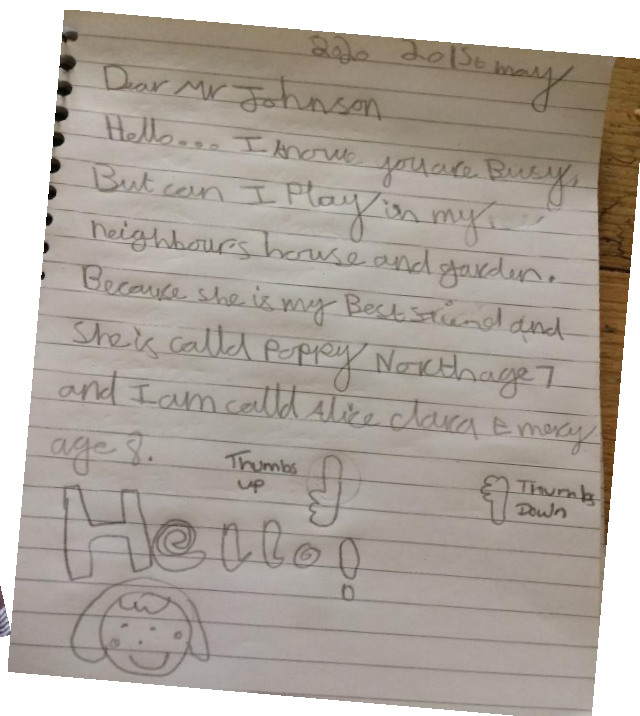 2020 201st may
Dear Mr Johnson
Hello... I knowe you are Busy,
But can I Play in my
neighbours house and garden.
Because she is my Best friend and
She is calld Poppy North age 7
and I am calld Alice clara Emery
age 8.
Thumbs
up
Thumbs
Down
Hello!